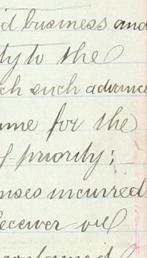 d business and
ty to the
ch such advance
me for the
f priority;
nses incurred
eceiver or